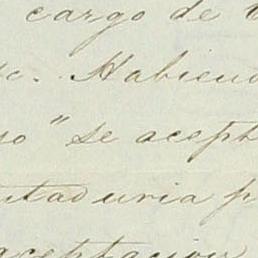 cargo de
Habiend
" se acepta
taduria p
aceptacion